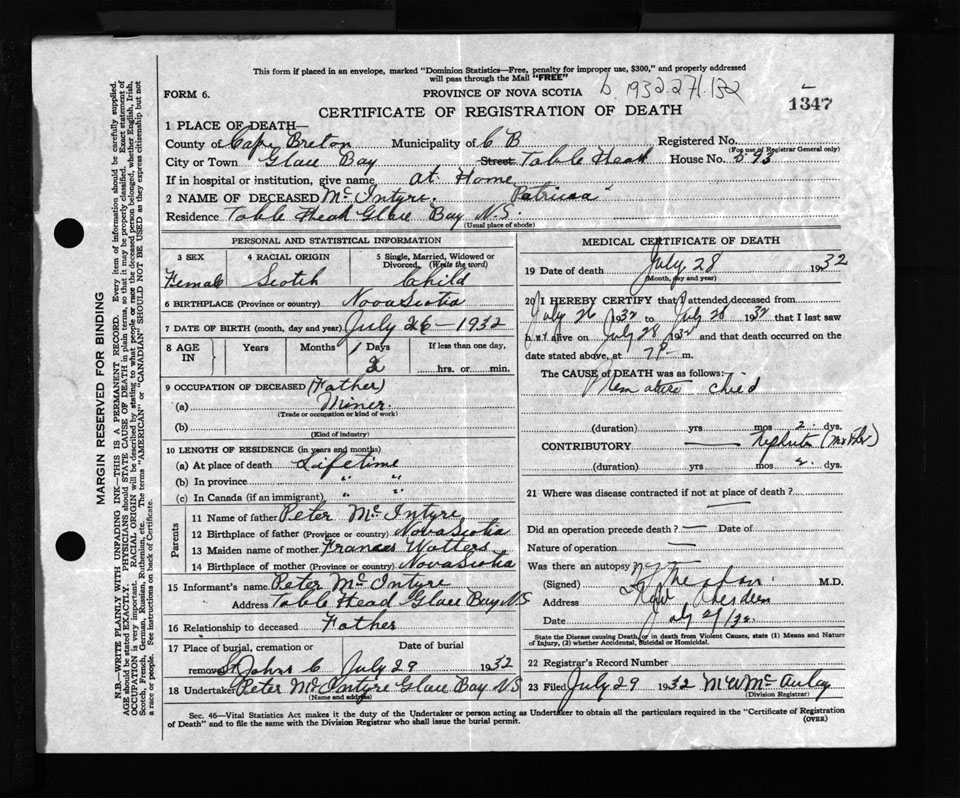 This form if placed in an envelope, marked "Dominion Statistics—Free, penalty for improper use, $300," and properly addressed
will pass through the Mail "FREE"
FORM 6. PROVINCE OF NOVA SCOTIA
1347
CERTIFICATE OF REGISTRATION OF DEATH
1 PLACE OF DEATH—
County of Cape Breton Municipality of C B Registered No.
(For use of Registrar General only)
City or Town Glace Bay Street Table Head House No. 593
If in hospital or institution, give name at Home
2 NAME OF DECEASED Mc Intyre. Patricia
Residence Table Head Glace Bay N.S.
(Usual place of abode)
PERSONAL AND STATISTICAL INFORMATION
3 SEX 4 RACIAL ORIGIN 5 Single, Married, Widowed or Divorced. (Write the word)
Female Scotch Child
6 BIRTHPLACE (Province or country) Nova Scotia
7 DATE OF BIRTH (month, day and year) July 26 - 1932
8 AGE IN Years Months Days If less than one day,
2 hrs. or min.
9 OCCUPATION OF DECEASED (Father)
(a) Miner.
(Trade or occupation or kind of work)
(b)
(Kind of industry)
10 LENGTH OF RESIDENCE (in years and months)
(a) At place of death Lifetime
(b) In province " "
(c) In Canada (if an immigrant) " "
Parents
11 Name of father Peter Mc Intyre
12 Birthplace of father (Province or country) Nova Scotia
13 Maiden name of mother Frances Watters
14 Birthplace of mother (Province or country) Nova Scotia
15 Informant's name Peter Mc Intyre
Address Table Head Glace Bay NS
16 Relationship to deceased Father
17 Place of burial, cremation or Date of burial
removal St Johns C July 29 1932
18 Undertaker Peter Mc Intyre Glace Bay NS
(Name and address)
MEDICAL CERTIFICATE OF DEATH
19 Date of death July 28 1932
(Month, day and year)
20 I HEREBY CERTIFY that I attended deceased from
July 26 1932 to July 28 1932 that I last saw
h er alive on July 28 1932 and that death occurred on the
date stated above, at 7 P m.
The CAUSE of DEATH was as follows:
child
(duration) yrs mos 2 dys.
CONTRIBUTORY
(duration) yrs mos 2 dys.
21 Where was disease contracted if not at place of death?
Did an operation precede death? — Date of
Nature of operation —
Was there an autopsy
(Signed) M.D.
Address New Aberdeen
Date July 29/32
State the Disease causing Death, or in death from Violent Causes, state (1) Means and Nature
of Injury, (2) whether Accidental, Suicidal or Homicidal.
22 Registrar's Record Number
23 Filed July 29 1932 M W Mc Aulay
(Division Registrar)
Sec. 46—Vital Statistics Act makes it the duty of the Undertaker or person acting as Undertaker to obtain all the particulars required in the "Certificate of Registration
of Death" and to file the same with the Division Registrar who shall issue the burial permit.
(OVER)
MARGIN RESERVED FOR BINDING
N.B.—WRITE PLAINLY WITH UNFADING INK—THIS IS A PERMANENT RECORD. Every item of information should be carefully supplied.
AGE should be stated EXACTLY. PHYSICIANS should STATE CAUSE OF DEATH in plain terms, so that it may be properly classified. Exact statement of
OCCUPATION is very important. RACIAL ORIGIN will be described by stating to what people or race the deceased person belonged, whether English, Irish,
Scotch, French, German, Russian, Ruthenian, etc. The terms "AMERICAN" or "CANADIAN" SHOULD NOT BE USED as they express citizenship but not
a race or people. See instructions on back of Certificate.